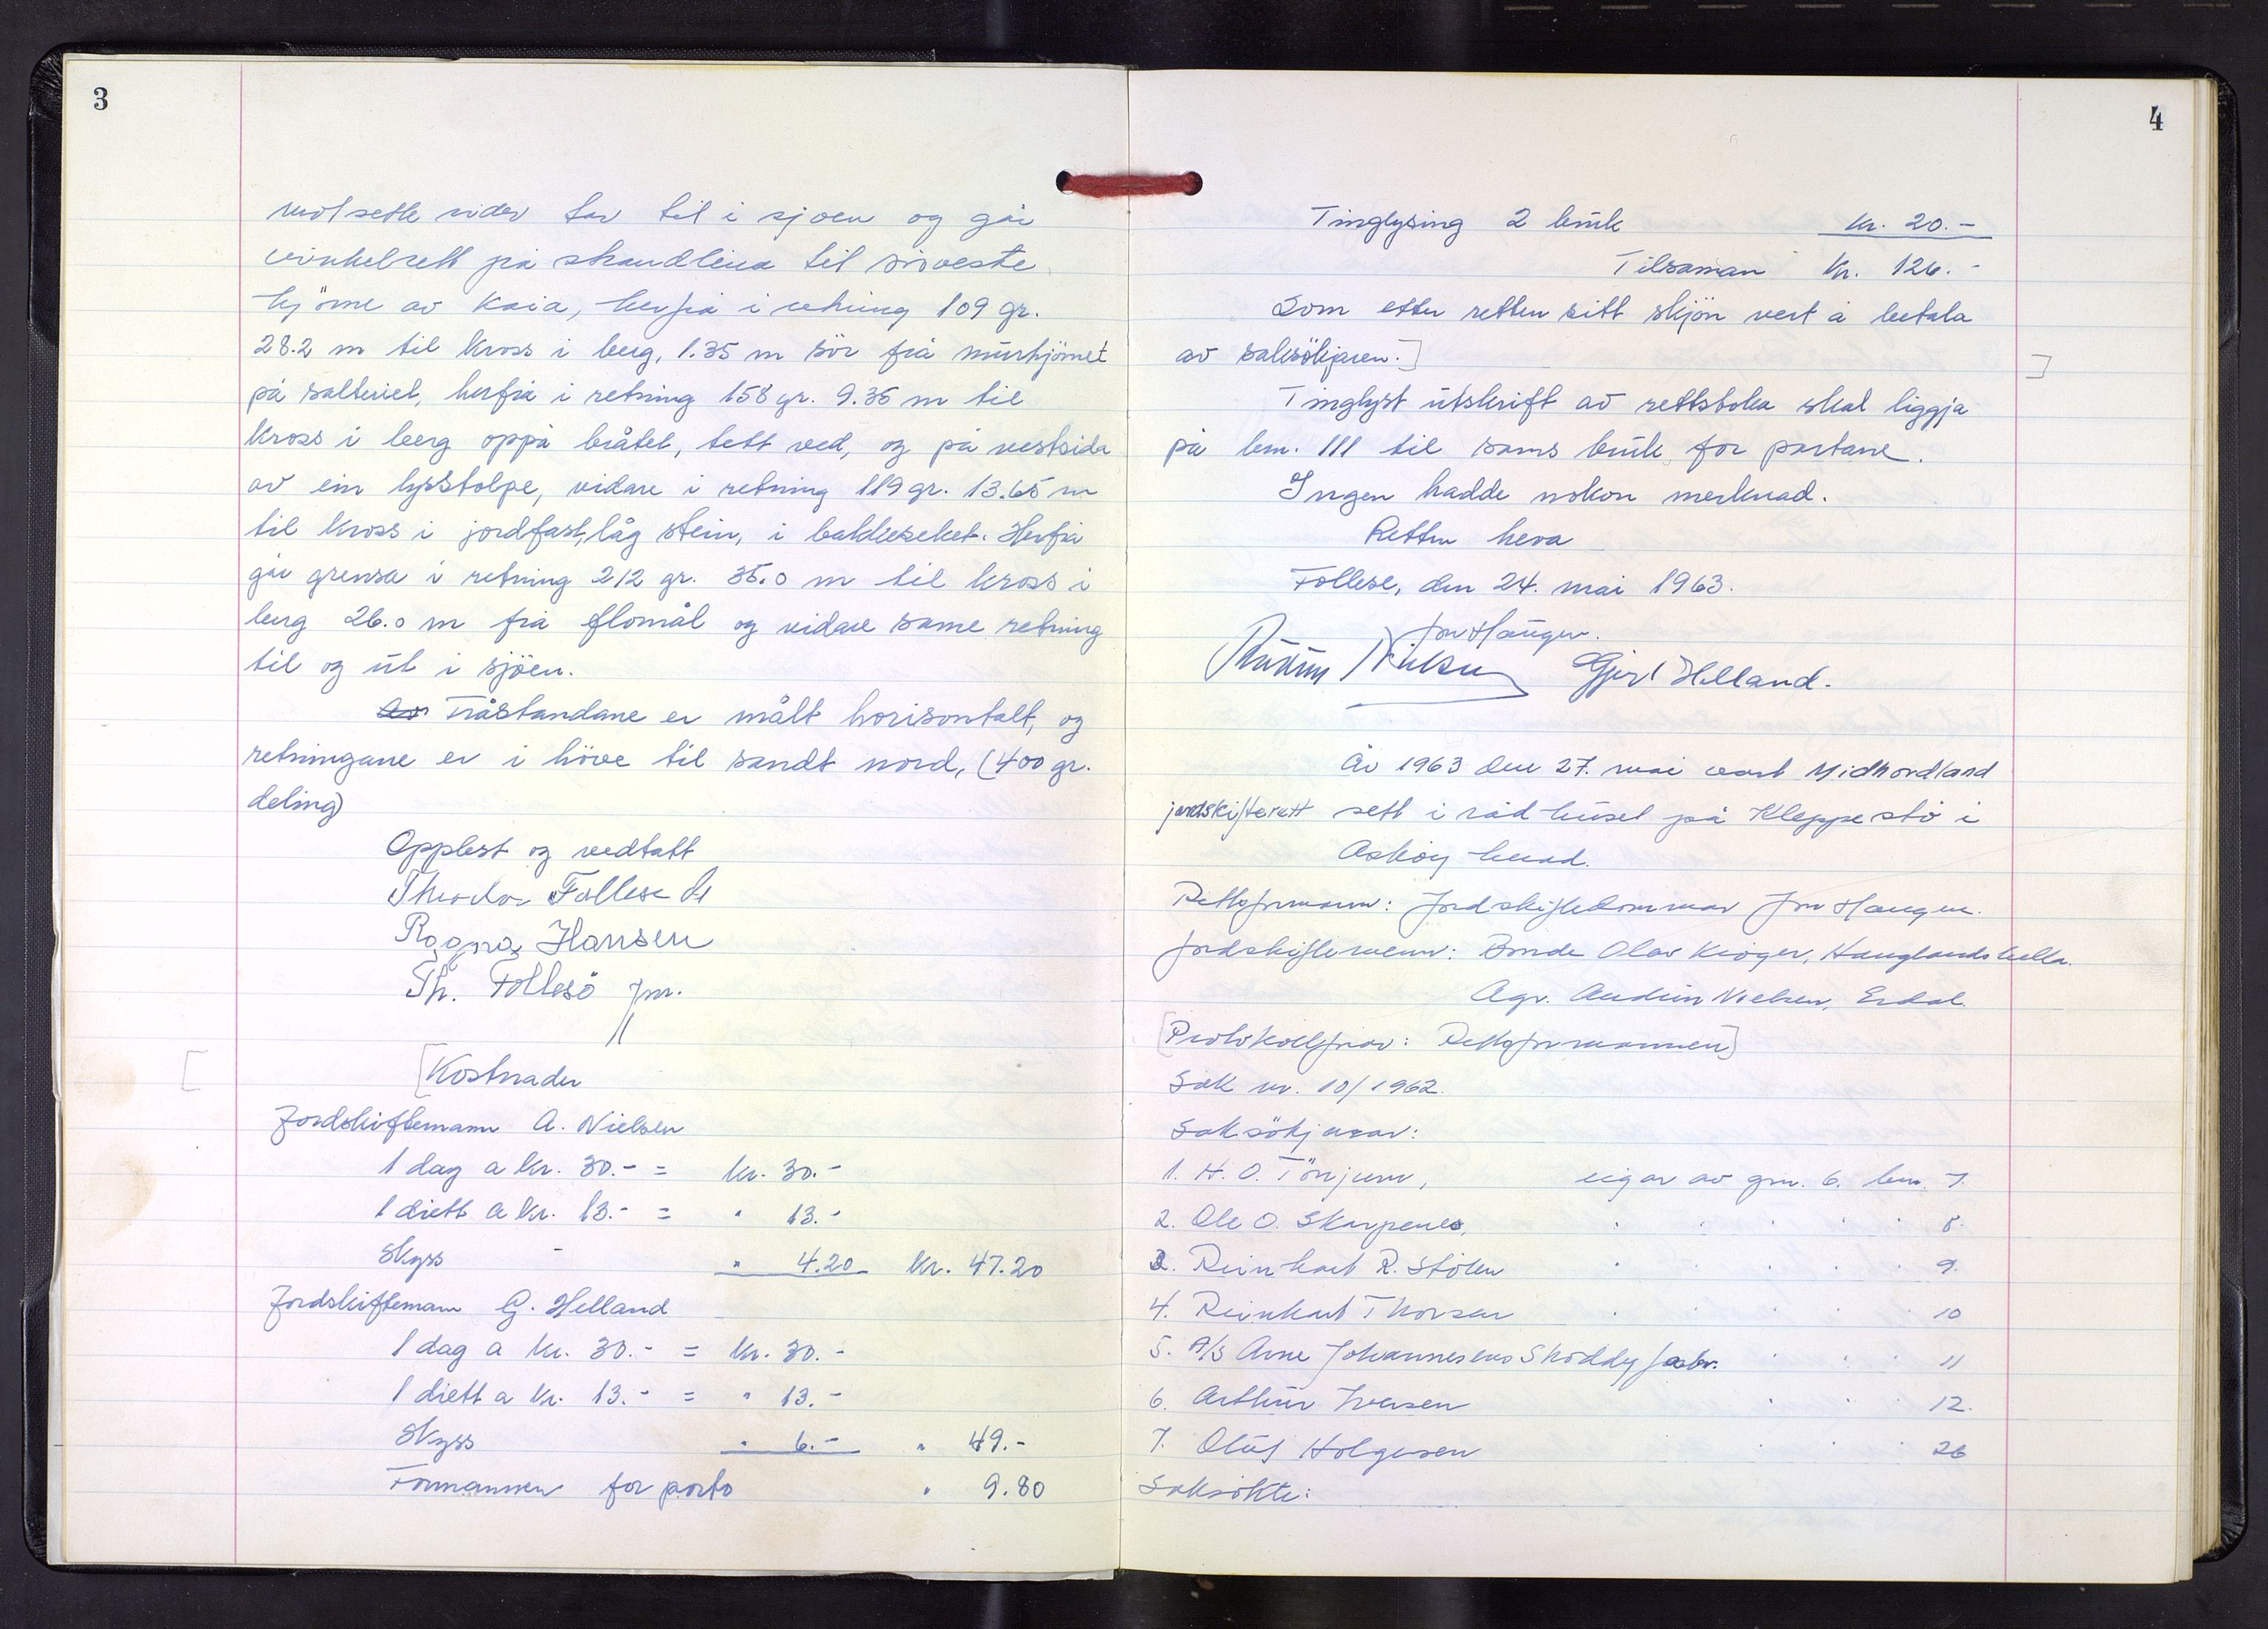 3
motsette sider tar til i sjøen og går
vinkelrett på strandlina til
hjörne av kaia, herfrå i retning 109 gr.
28.2 m til kross i berg, 1.35 m sör frå murhjörnet
på salteriet, herfrå i retning 158 gr. 9.35 m til
kross i berg oppå bråtet, tett ved, og på vestsida
av ein lysstolpe, vidare i retning 119 gr. 13.65 m
til kross i jordfast, låg stein, i bakkeseket. Herfrå
går grensa i retning 212 gr. 35.0 m til kross i
berg 26.0 m frå flomål og vidare same retning
til og ut i sjöen.
Fråstandane er målt horisontalt, og
retningane er i höve til sandt nord, (400 gr.
deling)
Opplest og vedtatt
Theodor Follese
Ragna Hansen
Th. Follesö jnr.
[Kostnader
Jordskiftemann A. Nielsen
1 dag a kr. 30.- = kr. 30.-
1 diett a kr. 13.- = " 13.-
Skyss - " 4.20 kr. 47.20
Jordskiftemann G. Helland
1 dag a kr. 30.- = kr. 30.-
1 diett a kr. 13.- = " 13.-
Skyss " 6.- " 49.-
Formannen for porto " 9.80
4
Tinglysing 2 bruk kr. 20.-
Tilsaman kr. 126.-
Som etter retten sitt skjön vert å betala
av saksökjaren.]
Tinglyst utskrift av rettsboka skal liggja
på bnr. 111 til sams bruk for partane.
Ingen hadde nokon merknad.
Retten heva
Follese, den 24. mai 1963.
Jon Haugen.
Audun Nielsen Gjert Helland.
År 1963 den 27. mai vart Midhordland
jordskifterett sett i rådhuset på Kleppestö i
Askøy herad.
Rettsformann: Jordskiftedommar Jon Haugen.
Jordskiftemenn: Bonde Olav Krøger, Hauglandshella.
Agr. Audun Nielsen, Erdal.
[Protokollførar: Rettsformannen]
Sak nr. 10/1962.
Saksökjarar:
1. H. O. Tönjum, eigar av gnr. 6. bnr. 7.
2. Ole O. Skarpenes, " " " " " 8.
3. Reinhart R. Stölen " " " " " 9.
4. Reinhart Thorsen " " " " " 10
5. A/S Arne Johannesens Shoddyfabr. " " " 11
6. Arthur Iversen " " " 12.
7. Oluf Holgersen " " " 26
Saksökte: